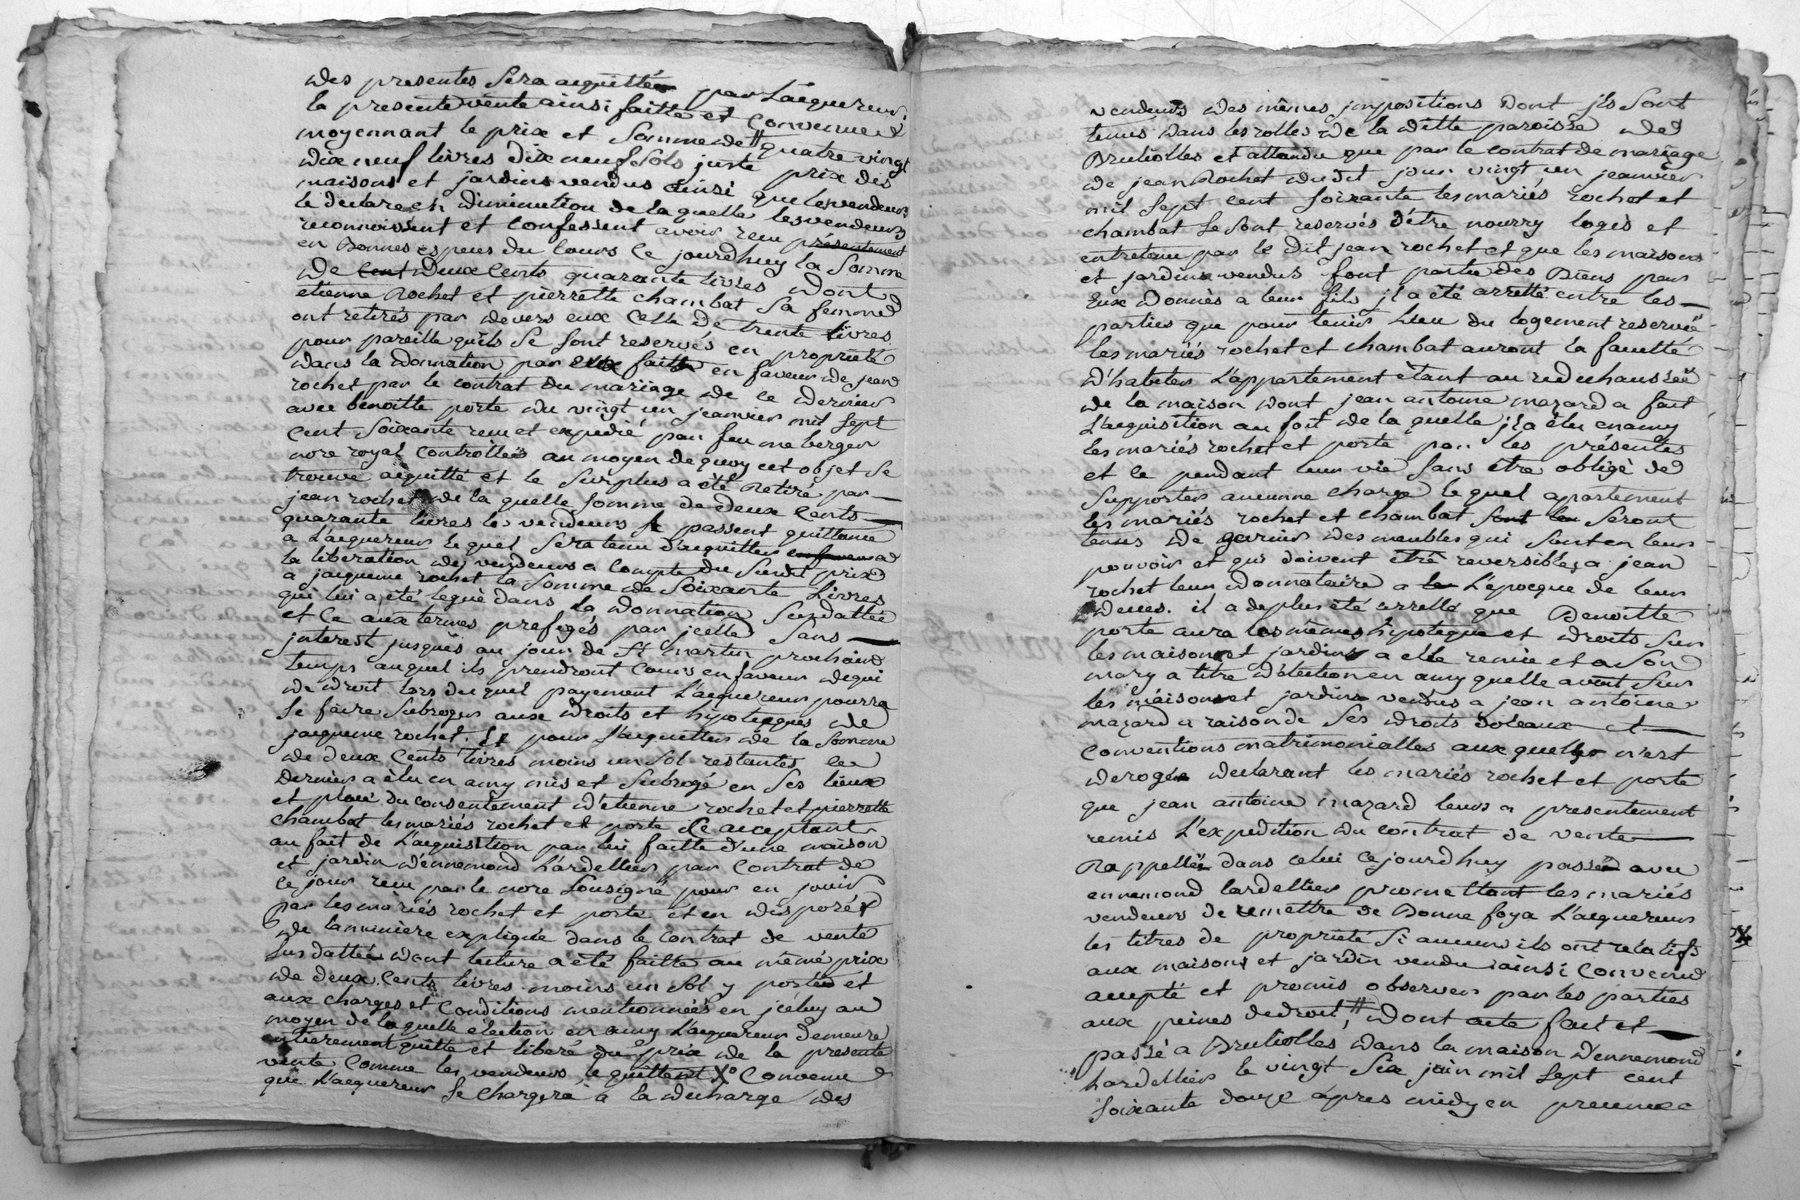 des presentes sera acquittée par L'acquereur.
la presente vente ainsi faitte et convenue
moyennant le prix et somme de # quatre vingt
dix neuf livres dix neuf sols juste prix des
maisons et jardins vendus ainsi que les vendeurs
le déclare en diminution de la quelle les vendeurs
reconnoissent et confessent avoir reçu présentement
en Bonnes especes du cours ce jourdhuy la somme
de cent deux cents quarante livres dont
etienne Rochet et pierrette chambat sa femme
ont retirés par devers eux celle de trente livres
pour pareille quils se sont reservés en propriété
dans la donnation par eux faitte en faveur de jean
rochet par le contrat du mariage de ce dernier
avec benoitte porte du vingt un jeanvier mil sept
cent soixante reçu et expedié par feu me berger
nore royal controllée au moyen de quoy cet objet se
trouve acquitté et le surplus a été Retiré par
jean rochet de la quelle somme de deux cents
quarante livres les vendeurs passent quittance
a L'acquereur le quel sera tenu d'acquitter
la liberation des vendeurs a compte du susdit prix
a jacqueme rochet la somme de soixante Livres
qui lui a été legué dans la donnation susdattée
et ce aux termes prefigés par jcelle sans
jnterest jusques au jour de St martin prochain
temps auquel ils prendront cours en faveur de qui
de droit lors du quel payement L'acquereur pourra
se faire subroger aux droits et hipoteques de
jacqueme rochet. Et pour L'acquitter de la somme
de deux cents livres moins un sol restantes ce
dernier a élu en amy mis et subrogé en ses lieux
et place du consentement d'etienne rochet et pierrette
chambat les mariés rochet et porte ce acceptant
au fait de L'acquisition par lui faitte d'une maison
et jardin d'ennemond Lardellier par contrat de
ce jour reçu par le nore sousigné pour en jouir
par les mariés rochet et porte et en disposer
de la maniere expliquée dans le contrat de vente
susdattée dont lecture a été faitte au même prix
de deux cents livres moins un sol y portée et
aux charges et conditions mentionnées en jceluy au
moyen de la quelle élection en amy L'acquereur demeure
entierement quitte et liberé du prix de la presente
vente comme les vendeurs le quittent Xo convenu
que L'acquereur se chargera a la décharge des
vendeurs des mêmes jmpositions dont jls sont
tenus dans les rolles de la ditte paroisse de
Brulliolles et attandu que par le contrat de mariage
de jean Rochet dudit jour vingt un jeanvier
mil sept cent soixante les mariés rochet et
chambat se sont reservés d'être nourry logés et
entretenu par le dit jean rochet et que les maisons
et jardins vendus font partie des Biens par
Eux donnés a leur fils jl a été arretté entre les
parties que pour tenir Lieu du logement reservée
les mariés rochet et chambat auront la faculté
d'habiter L'appartement étant au redechaussée
de la maison dont jean antoine mazard a fait
L'acquisition au fait de la quelle jl a élu en amy
les mariés rochet et porte par les présentes
et ce pendant leur vie sans être obligé de
supporter aucunne charge le quel apartement
les mariés rochet et chambat sont seront
tenus de garnir des meubles qui sont en leur
pouvoir et qui doivent être reversibles a jean
rochet leur donnataire a L'epoque de leur
deces. il a deplus été arretté que Benoitte
porte aura les mêmes hipoteque et droits sur
les maison et jardins a elle remie et a son
mary a titre d'élection en amy quelle avoit sur
les maisons et jardins vendus a jean antoine
mazard a raison de ses droits dotaux et
conventions matrimonialles auxquelles n'est
derogée declarant les mariés rochet et porte
que jean antoine mazard leurs a presentement
remis L'expedition du contrat de vente
Rappellée dans celui cejourdhuy passée avec
ennemond lardellier promettant les mariés
vendeurs de remettre de Bonne foy a L'acquereur
les titres de proprieté si aucuns ils ont relatifs
aux maisons et jardin vendu ainsi convenu
accepté et promis observer par les parties
aux peines de droit, # dont acte fait et
passé a Brulliolles dans la maison d'ennemond
Lardellier le vingt six juin mil sept cent
soixante douze apres midy en presence